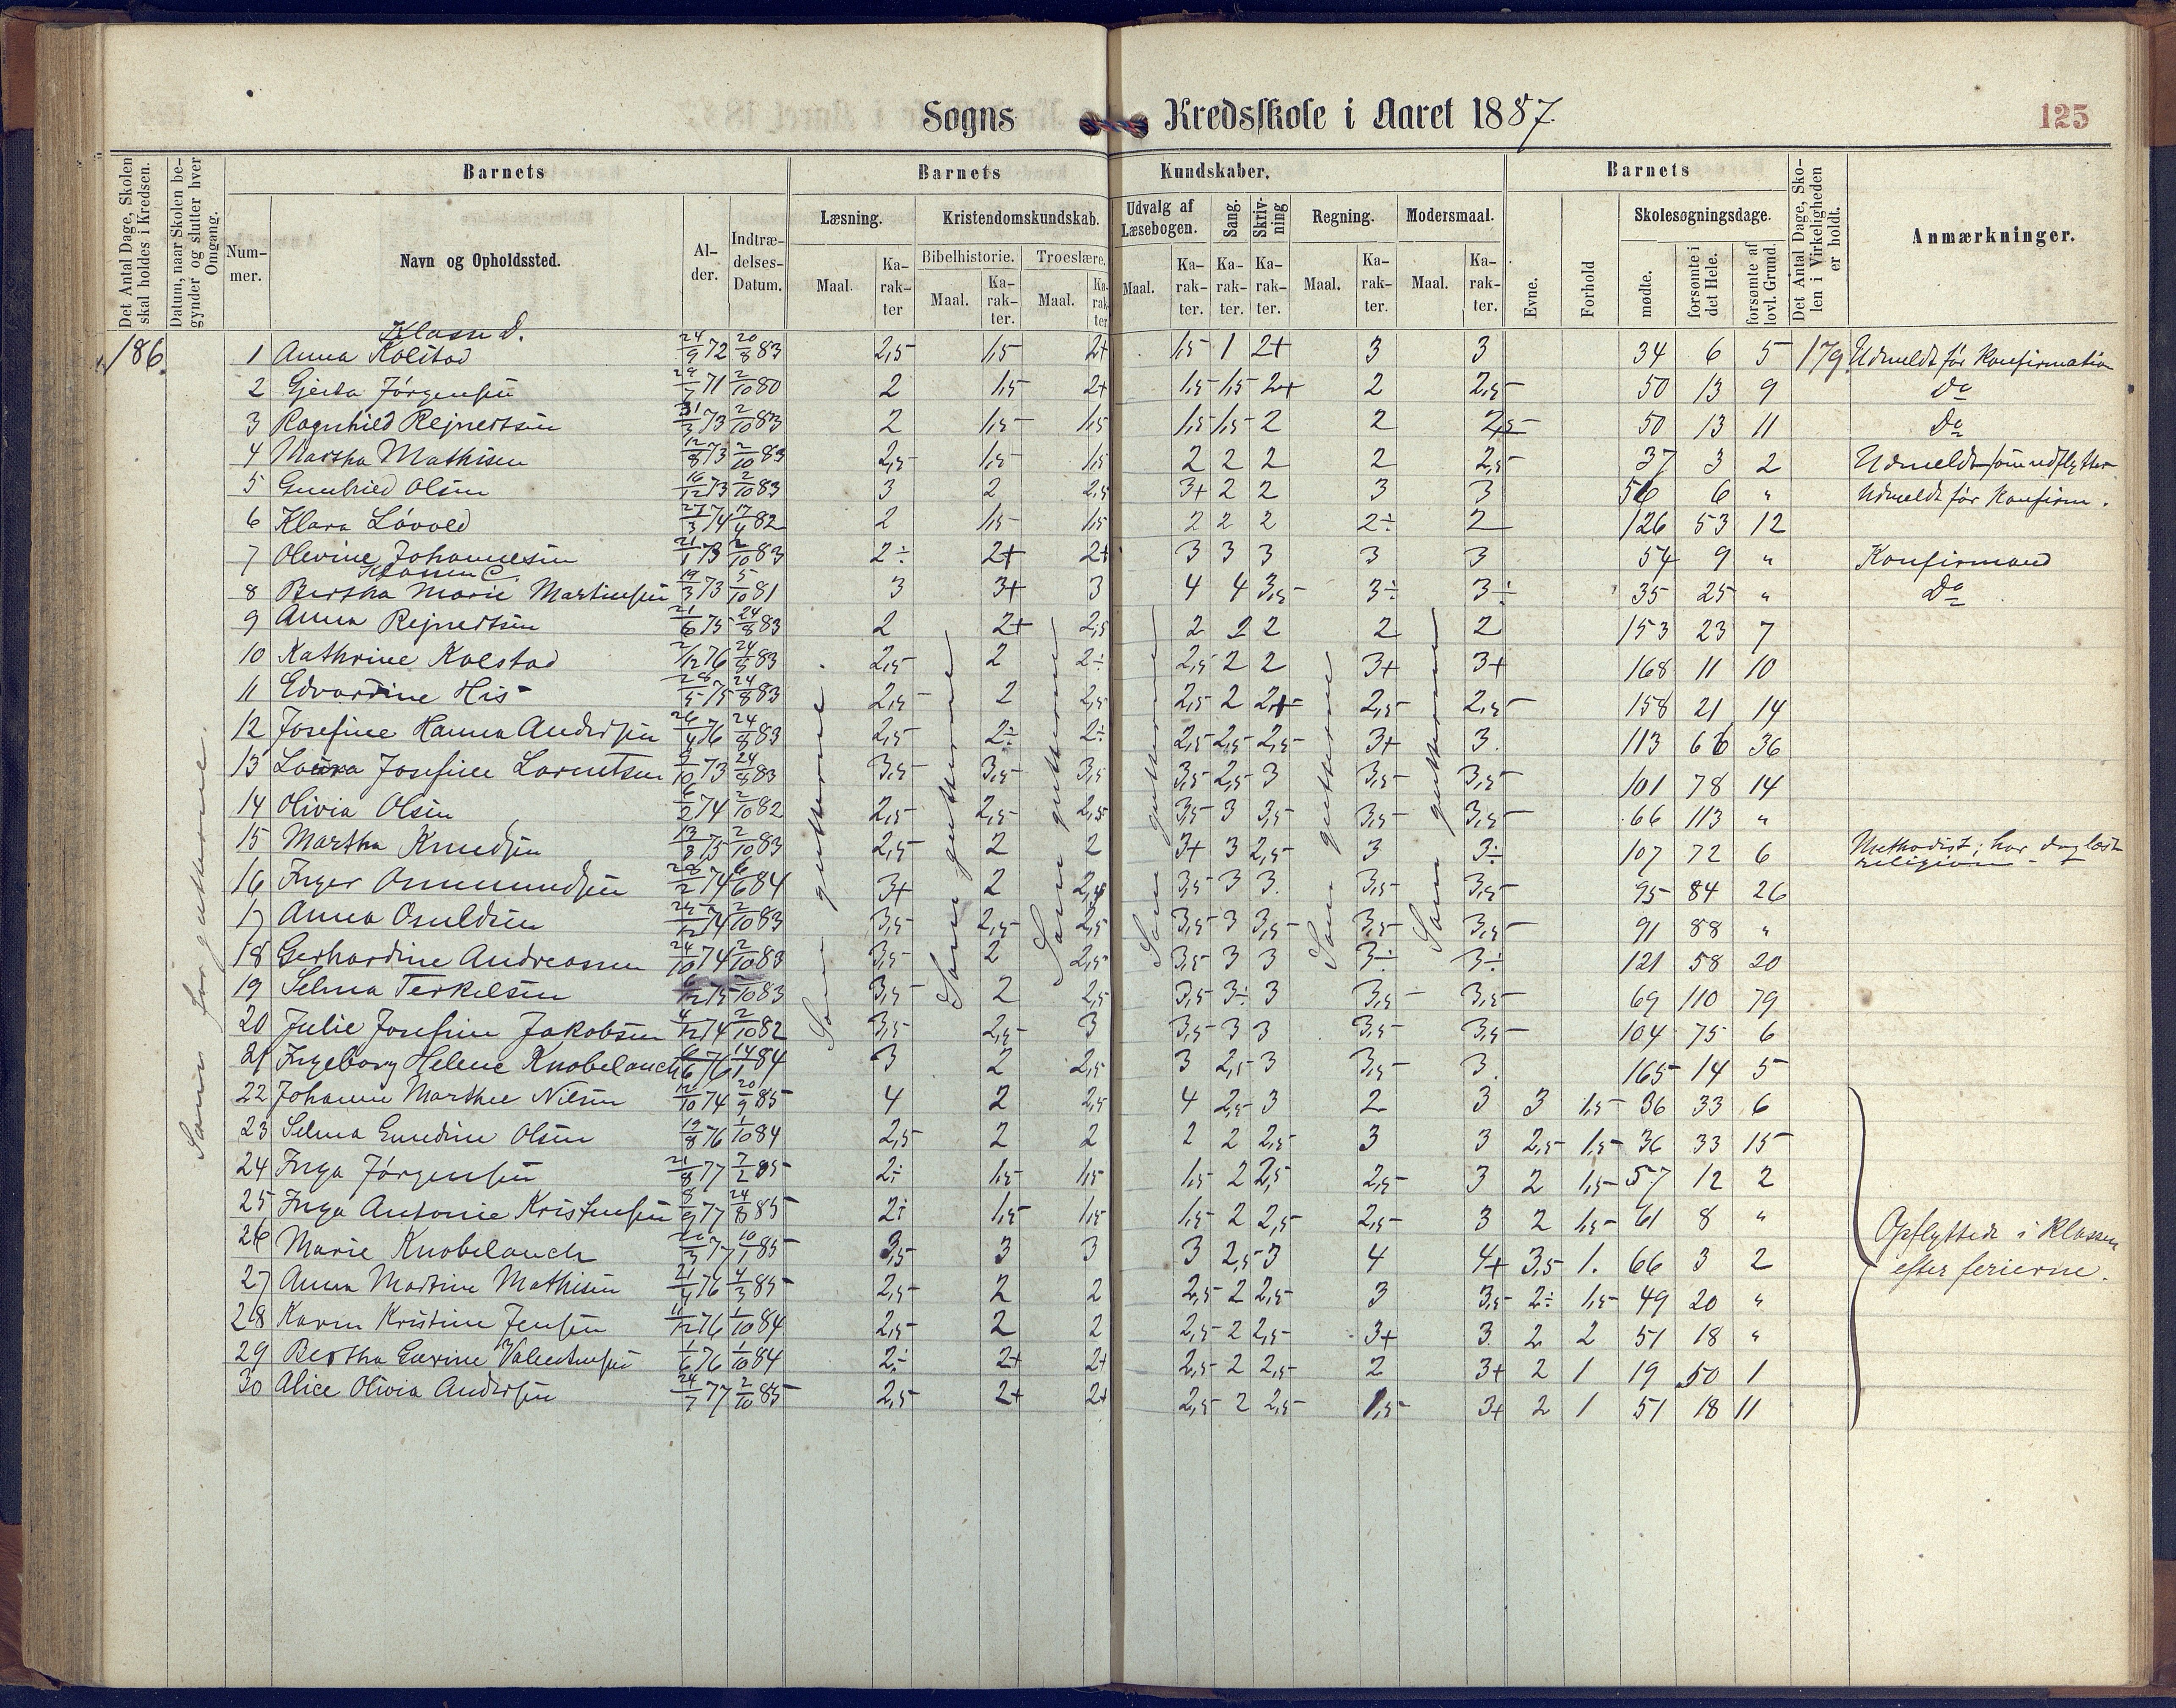 Sogns Kredsskole i Aaret 1887.
125
Det Antal Dage, Skolen skal holdes i Kredsen.
Datum, naar Skolen begynder og slutter hver Omgang.
Barnets
Barnets Kundskaber.
Barnets
Det Antal Dage, Skolen i Virkeligheden er holdt.
Anmærkninger.
Nummer.
Navn og Opholdssted.
Alder.
Indtrædelses-Datum.
Læsning.
Kristendomskundskab.
Udvalg af Læsebogen.
Sang.
Skrivning
Regning.
Modersmaal.
Evne.
Forhold
Skolesøgningsdage.
Bibelhistorie.
Troeslære.
Maal.
Karakter
Maal.
Karakter.
Maal.
Karakter
Maal.
Karakter.
Karakter.
Karakter.
Maal.
Karakter.
Maal.
Karakter.
mødte.
forsømte i det Hele.
forsømte af lovl. Grund.
Klasse D.
186. 1 Anna Kolstad 24/9 72 20/8 83 2,5 1,5 2+ 1,5 1 2+ 3 3 34 6 5 179 Udmeldt før Konfirmation
2 Gjerda Jörgensen 29/7 71 2/10 80 2 1,5 2+ 1,5 1,5 2+ 2 2,5 50 13 9 Do
3 Ragnhild Rejnertsen 31/3 73 2/10 83 2 1,5 1,5 1,5 1,5 2 2 2,5 50 13 11 Do
4 Martha Mathisen 12/8 73 2/10 83 2,5 1,5 1,5 2 2 2 2 2,5 37 3 2 Udmeldt som udflyttet
5 Gunhild Olsen 16/12 73 2/10 83 3 2 2,5 3+ 2 2 3 3 56 6 " Udmeldt før Konfirm.
6 Klara Lövold 27/3 74 17/4 82 2 1,5 1,5 2 2 2 2÷ 2 126 53 12
7 Olevine Johannesen 21/1 73 2/10 83 2÷ 2+ 2+ 3 3 3 3 3 54 9 " Konfirmand
Klasse C.
8 Bertha Marie Martinsen 19/3 73 5/10 81 3 3+ 3 4 4 3,5 3÷ 3÷ 35 25 " Do
9 Anna Rejnertsen 21/6 75 24/8 83 2 2+ 2,5 2 2 2 2 2 153 23 7
10 Kathrine Kolstad 2/12 76 24/8 83 2,5 2 2÷ 2,5 2 2 3+ 3+ 168 11 10
11 Edvardine His 28/5 75 24/8 83 2,5 2 2,5 2,5 2 2+ 2,5 2,5 158 21 14
12 Josefine Hanna Andersen 26/4 76 24/8 83 2,5 2÷ 2÷ 2,5 2,5 2,5 3+ 3. 113 66 36
13 Laura Josefine Larentsen 2/10 73 24/8 83 3,5 3,5 3,5 3,5 2,5 3 3,5 3,5 101 78 14
14 Olivia Olsen 6/2 74 2/10 82 2,5 2,5 2,5 3,5 3 3,5 3,5 3,5 66 113 "
15 Martha Knudsen 13/8 75 2/10 83 2,5 2 2 3+ 3 2,5 3 3÷ 107 72 6 Methodist; har dog læst religion
16 Inger Ommundsen 28/2 74 6/6 84 3+ 2 2,5 3,5 3 3. 3,5 3,5 95 84 26
17 Anna Osuldsen 25/12 74 2/10 83 3,5 2,5 2,5 3,5 3 3,5 3,5 3,5 91 88 "
18 Gerhardine Andreassen 24/10 74 2/10 83 3,5 2 2,5 3,5 3 3 3÷ 3÷ 121 58 20
19 Selma Terkelsen 6/12 75 2/10 83 3,5 2 2,5 3,5 3÷ 3 3,5 3,5 69 110 79
20 Julie Josefine Jakobsen 4/12 74 2/10 82 3,5 2,5 3 3,5 3 3 3,5 3,5 104 75 6
21 Ingeborg Helene Knobelauch 6/6 76 14/1 84 3 2 2,5 3 2,5 3 3,5 3. 165 14 5
22 Johanne Marthee Nilsen 12/10 74 20/9 85 4 2 2,5 4 2,5 3 2 3 3 1,5 36 33 6
23 Selma Enedine Olsen 19/8 76 1/10 84 2,5 2 2 2 2 2,5 3 3 2,5 1,5 36 33 15
24 Inga Jörgensen 21/8 77 2/2 85 2÷ 1,5 1,5 1,5 2 2,5 2,5 3 2 1,5 57 12 2
25 Inga Antonie Kristensen 8/9 77 24/8 85 2÷ 1,5 1,5 1,5 2 2,5 2,5 3 2 1,5 61 8 "
26 Marie Knobelauch 20/3 77 10/1 85 3,5 3 3 3 2,5 3 4 4+ 3,5 1. 66 3 2
27 Anna Martine Mathisen 21/4 76 4/3 85 2,5 2 2 2,5 2 2,5 3 3,5 2÷ 1,5 49 20 "
28 Karen Kristine Jensen 11/12 76 1/10 84 2,5 2 2 2,5 2 2,5 3+ 3 2 2 51 18 "
29 Bertha Severine Valentinsen 1/6 76 1/10 84 2÷ 2+ 2+ 2,5 2 2,5 2 3+ 2 1 19 50 1
30 Alice Olivia Andersen 24/7 77 2/10 85 2,5 2+ 2+ 2,5 2 2,5 1,5 3+ 2 1 51 18 11
Opflyttede i Klassen
efter ferierne.
Som for gutterne.
Som gutterne.
Som gutterne
Som gutterne
Som gutterne
Som gutterne
Som gutterne